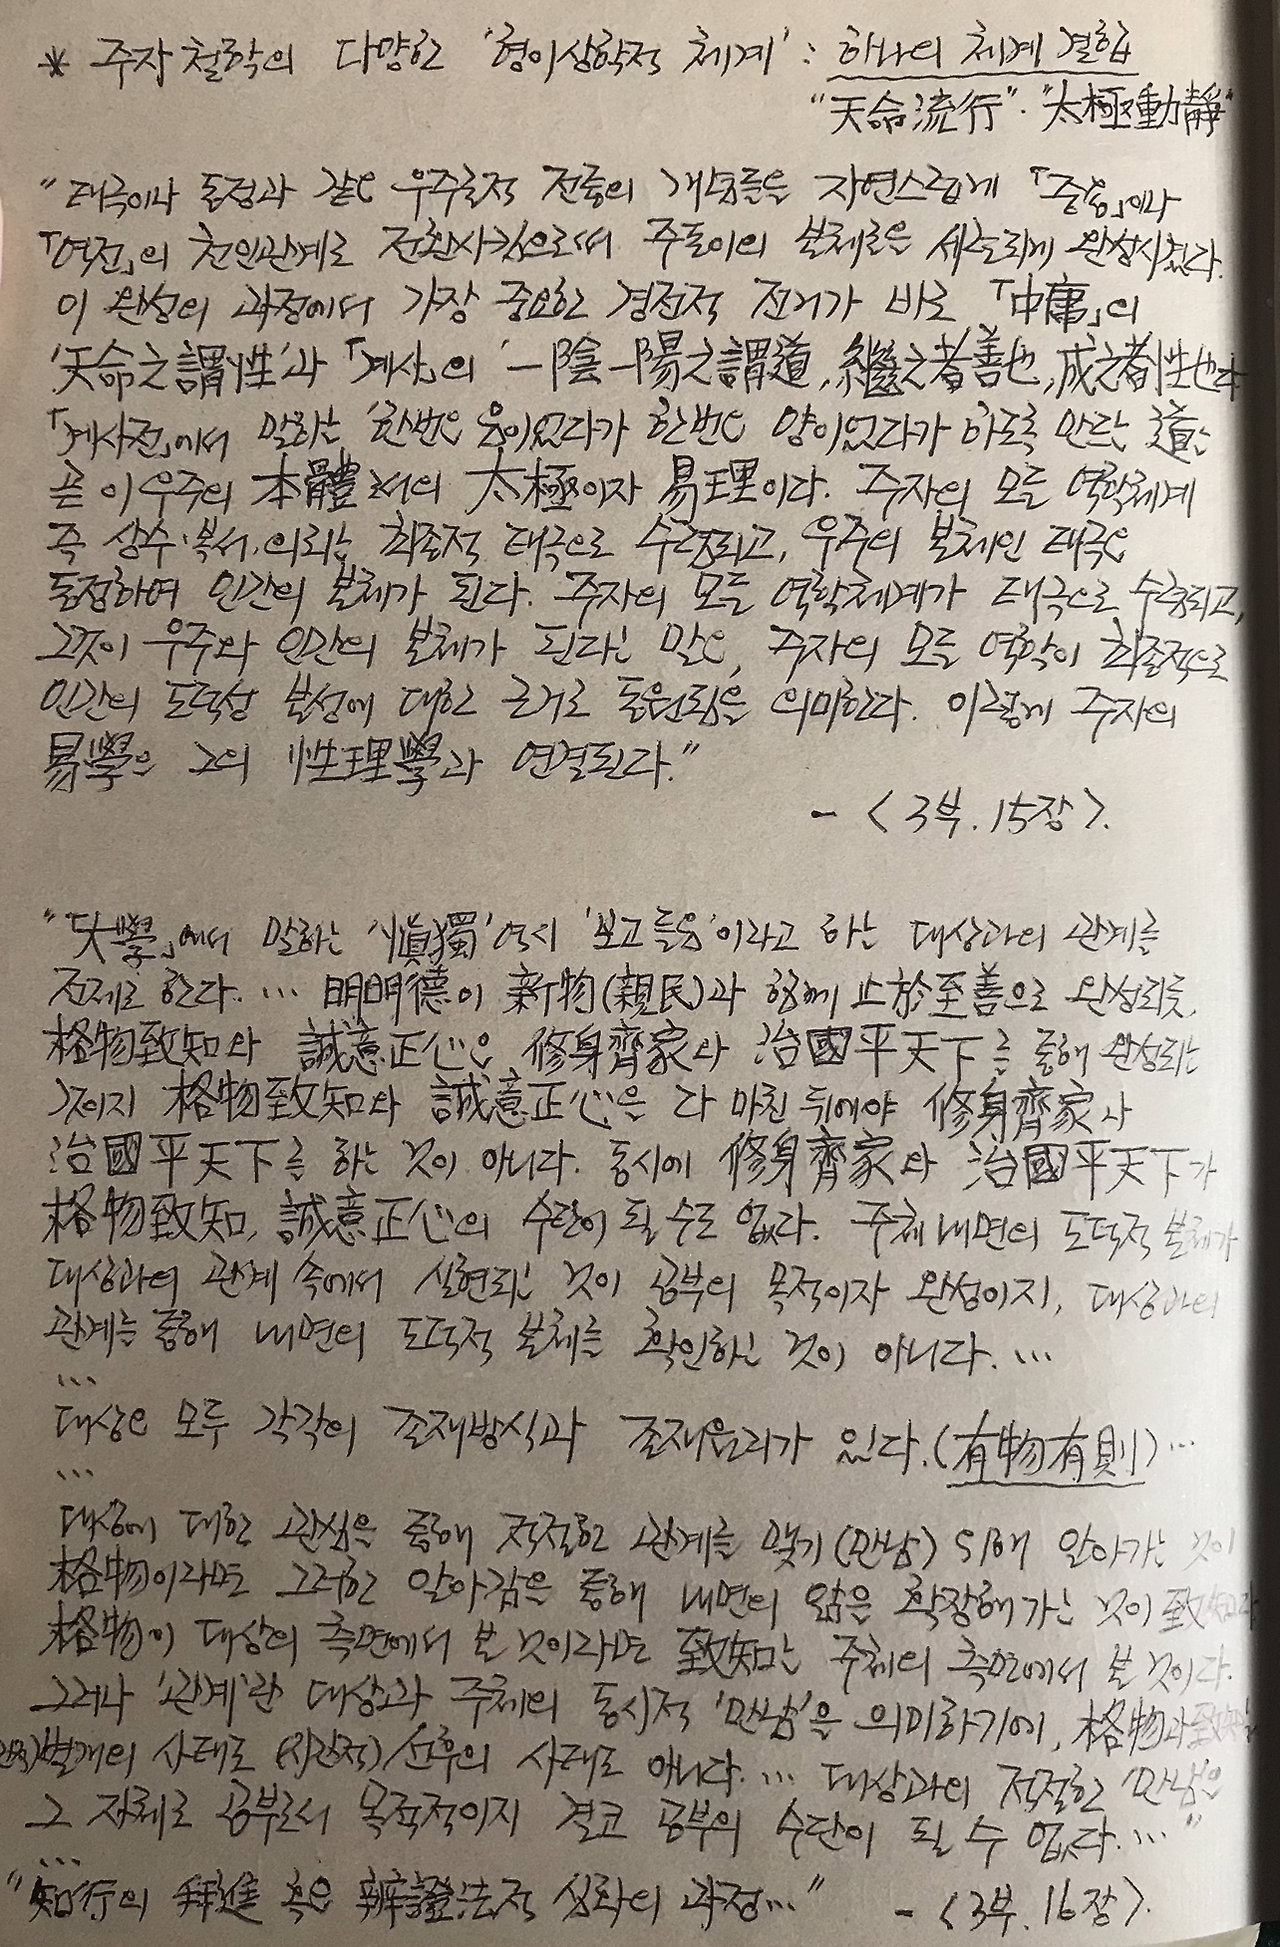 * 주자 철학의 다양한 '형이상학적 체계' : 하나의 체계 결합
"天命流行"·"太極動靜"
"태극이나 동정과 같은 우주론적 전통의 개념들을 자연스럽게 「중용」이나
「역전」의 천인관계로 전환시킴으로써 주돈이의 본체론을 세롭게 완성시켰다.
이 완성의 과정에서 가장 중요한 경전적 전거가 바로 「中庸」의
'天命之謂性'과 「계사」의 '一陰一陽之謂道, 繼之者善也, 成之者性也'다
「계사전」에서 말하는 '한번은 음이었다가 한번은 양이었다가 하도록 만드는 道'는
곧 이 우주의 本體로서의 太極이자 易理이다. 주자의 모든 역학체계
즉 상수·복서·의리는 최종적 태극으로 수렴되고, 우주의 본체인 태극은
동정하여 인간의 본체가 된다. 주자의 모든 역학체계가 태극으로 수렴되고,
그것이 우주와 인간의 본체가 된다는 말은, 주자의 모든 역학이 최종적으로
인간의 도덕성 본성에 대한 근거로 동원됨을 의미한다. 이렇게 주자의
易學은 그의 性理學과 연결된다."
- <3부. 15장>.
"「大學」에서 말하는 '愼獨' 역시 '보고 들음'이라고 하는 대상과의 관계를
전제로 한다. … 明明德이 新物(親民)과 함께 止於至善으로 완성되듯,
格物致知와 誠意正心은 修身齊家와 治國平天下를 통해 완성되는
것이지 格物致知와 誠意正心을 다 마친 뒤에야 修身齊家나
治國平天下를 하는 것이 아니다. 동시에 修身齊家와 治國平天下가
格物致知, 誠意正心의 수단이 될 수도 없다. 주체 내면의 도덕적 본체가
대상과의 관계 속에서 실현되는 것이 공부의 목적이자 완성이지, 대상과의
관계를 통해 내면의 도덕적 본체를 확인하는 것이 아니다. …
…
대상은 모두 각각의 존재방식과 존재원리가 있다. (有物有則) …
…
대상에 대한 관심을 통해 적절한 관계를 맺기(만남) 위해 알아가는 것이
格物이라면 그러한 알아감을 통해 내면의 앎을 확장해 가는 것이 致知다
格物이 대상의 측면에서 본 것이라면 致知는 주체의 측면에서 본 것이다.
그러나 '관계'란 대상과 주체의 동시적 '만남'을 의미하기에, 格物과 致知는
별개의 사태도 (시간적)선후의 사태도 아니다. … 대상과의 적절한 '만남'은
그 자체로 공부로서 목적적이지 결코 공부의 수단이 될 수 없다. …"
…
"知行의 竝進 혹은 辨證法적 심화의 과정…" - <3부. 16장>.